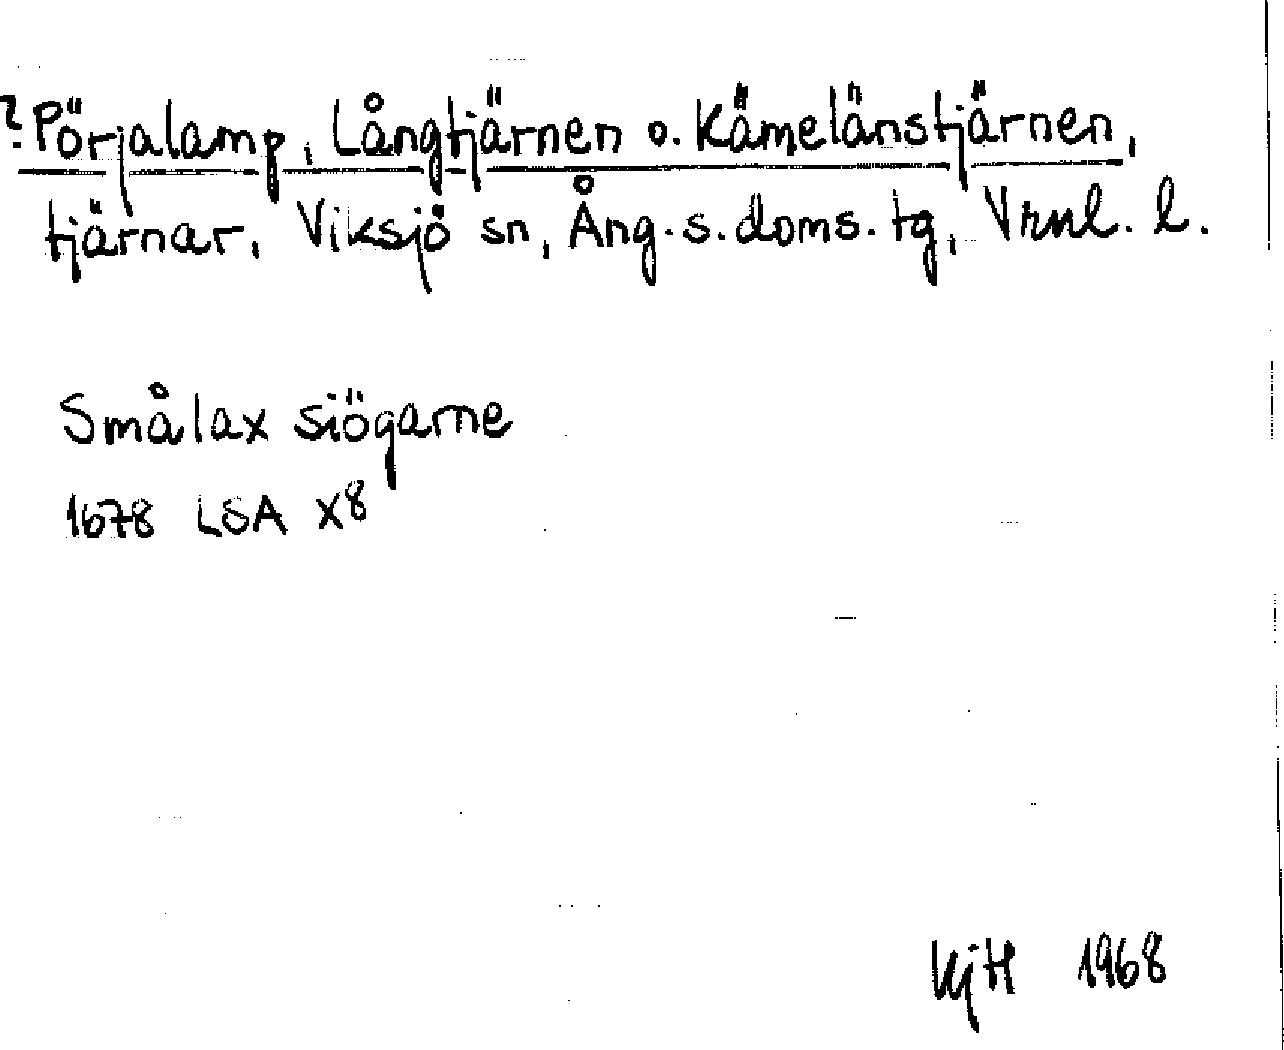 ? Pörjalamp, Långtjärnen o. Kämelänstjärnen,
tjärnar, Viksjö sn, Ång. s. doms. tg, Vrnl. l.
Smålax siögarne
1678 LSA X8
KjH 1968